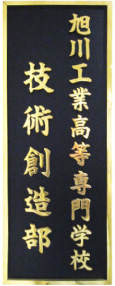 旭川工業高等専門学校
技術創造部